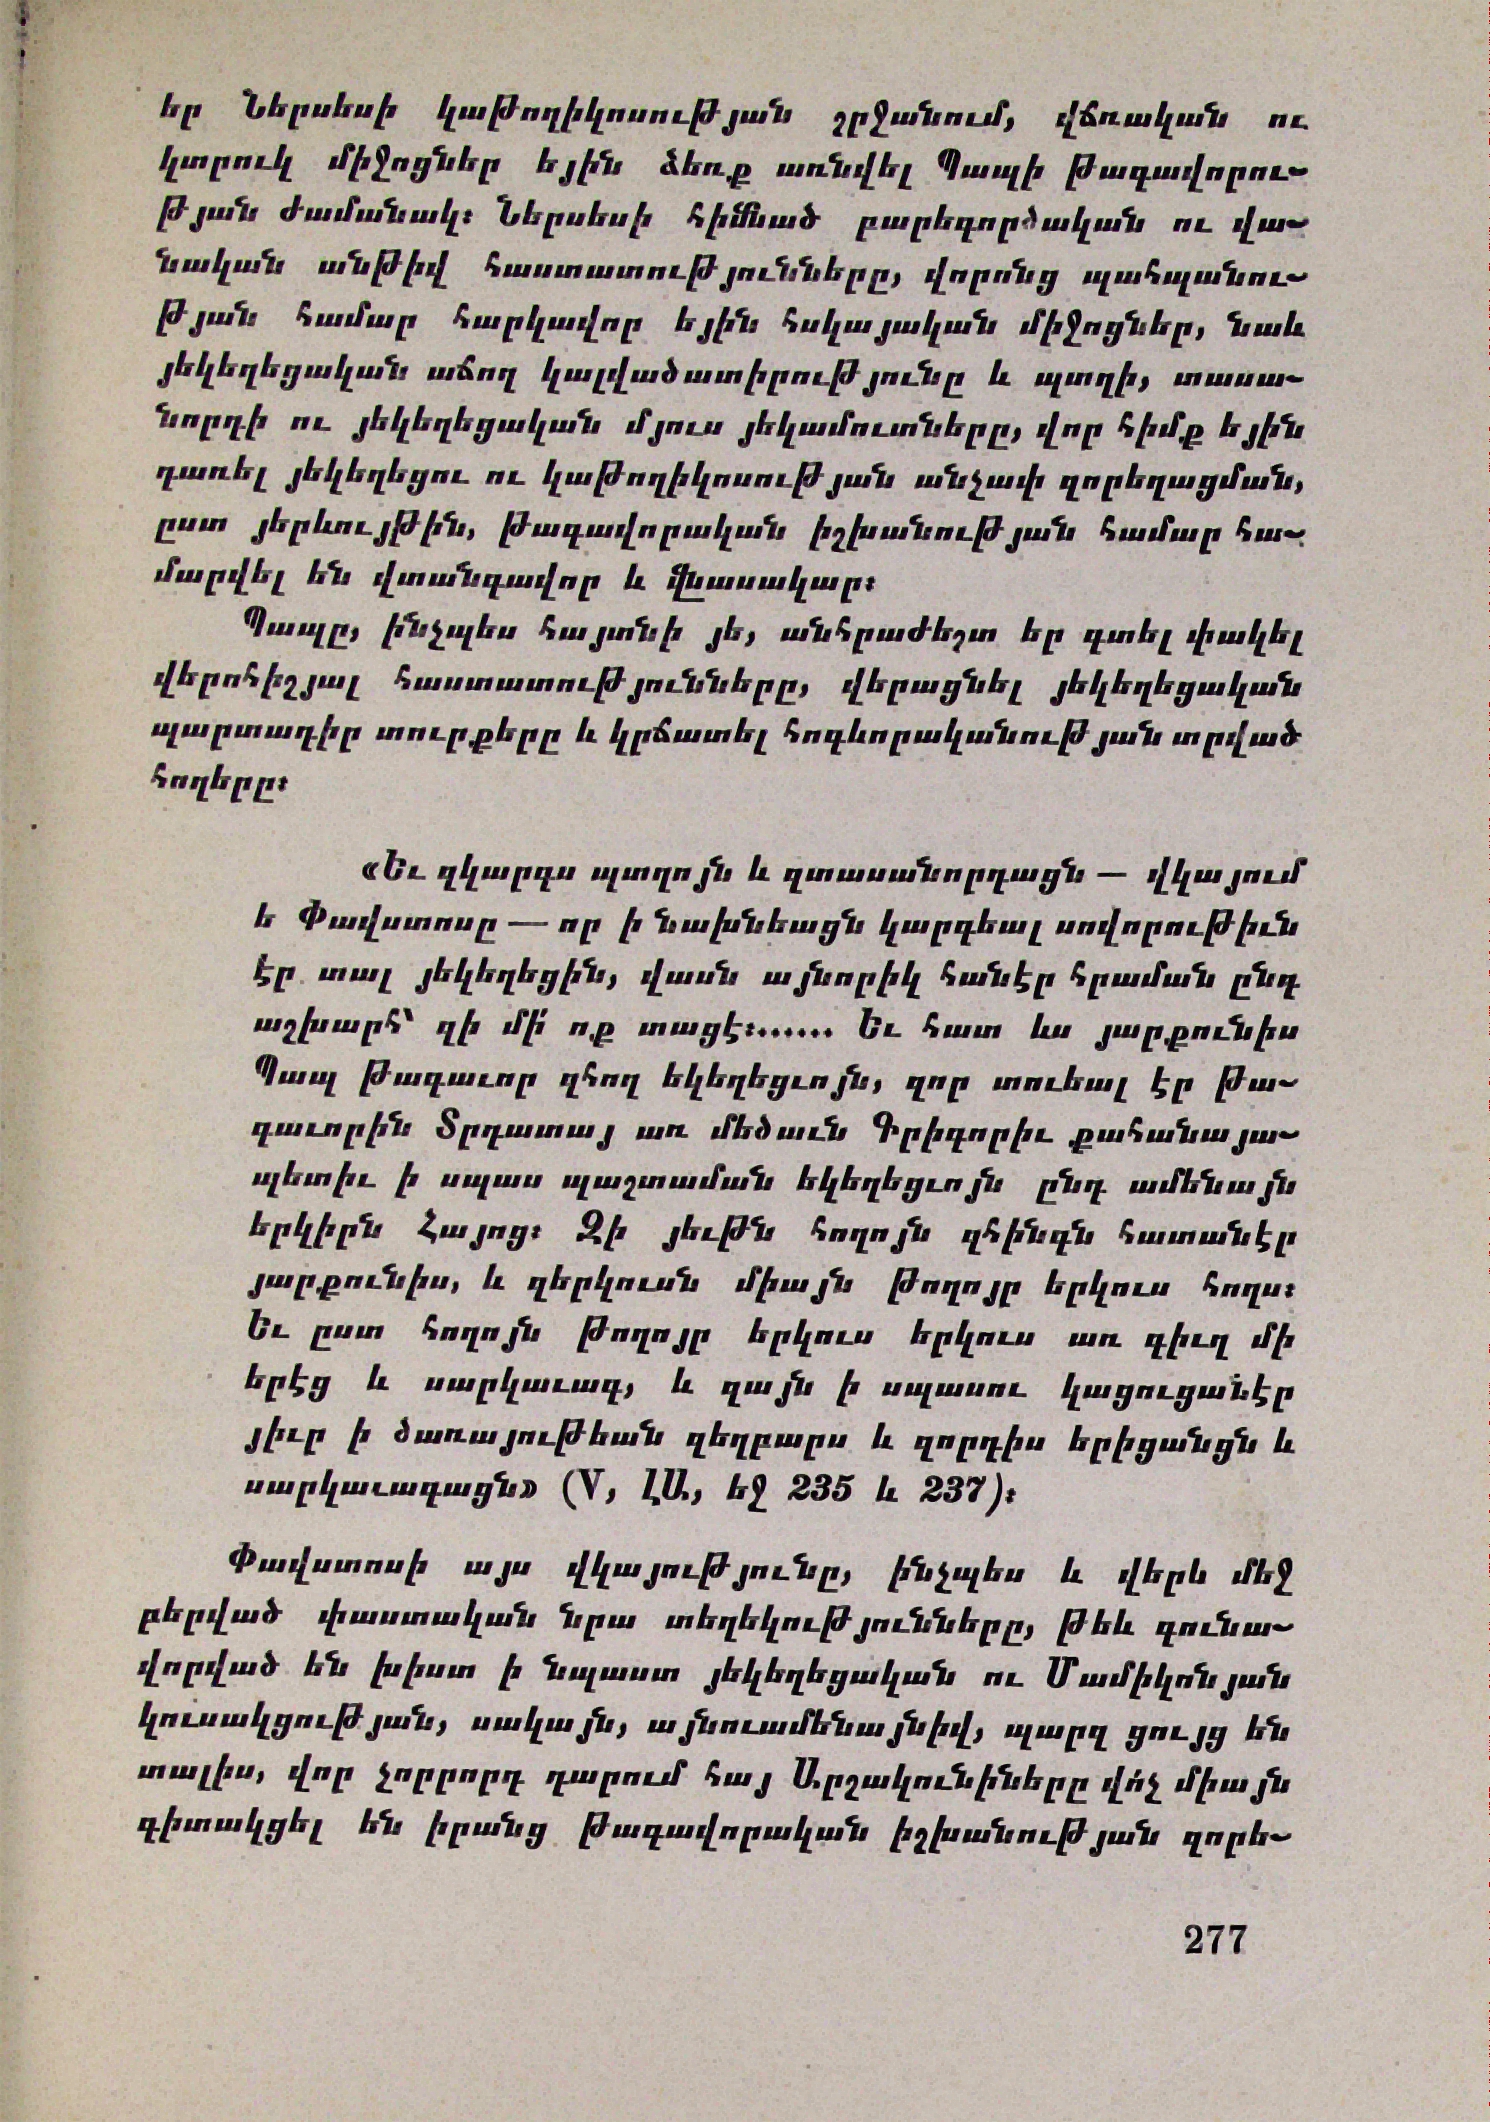 եր Ներսեսի կաթողիկոսության շրջանում, վճռական ու
կտրուկ միջոցներ եյին ձեռք առնվել Պապի թագավորու-
թյան ժամանակ: Ներսեսի հիմնած բարեգործական ու վա-
նական անթիվ հաստատությունները, վորոնց պահպանու-
թյան համար հարկավոր եյին հսկայական միջոցներ, նաև
յեկեղեցական աճող կալվածատիրությունը և պտղի, տասա-
նորդի ու յեկեղեցական մյուս յեկամուտները, վոր հիմք եյին
դառել յեկեղեցու ու կաթողիկոսության անչափ զորեղացման,
ըստ յերևույթին, թագավորական իշխանության համար հա-
մարվել են վտանգավոր և վնասակար:
Պապը, ինչպես հայտնի յե, անհրաժեշտ եր գտել փակել
վերոհիշյալ հաստատությունները, վերացնել յեկեղեցական
պարտադիր տուրքերը և կրճատել հոգևորականության տրված
հողերը:
«Եւ զկարգս պտղոյն և զտասանորդացն — վկայում
ե Փավստոսը — որ ի նախնեացն կարգեալ սովորութիւն
էր տալ յեկեղեցին, վասն այնորիկ հանէր հրաման ընդ
աշխարհ՝ զի մի՛ ոք տացէ:...... Եւ հատ ևս յարքունիս
Պապ թագաւոր զհող եկեղեցւոյն, զոր տուեալ էր թա-
գաւորին Տրդատայ առ մեծաւն Գրիգորիւ քահանայա-
պետիւ ի սպաս պաշտաման եկեղեցւոյն ընդ ամենայն
երկիրն Հայոց: Զի յեւթն հողոյն զհինգն հատանէր
յարքունիս, և զերկուսն միայն թողոյր երկուս հողս:
Եւ ըստ հողոյն թողոյր երկուս երկուս առ գիւղ մի
երէց և սարկաւագ, և զայն ի սպասու կացուցանէր
յիւր ի ծառայութեան զեղբարս և զորդիս երիցանցն և
սարկաւագացն» (V, ԼԱ, եջ 235 և 237):
Փավստոսի այս վկայությունը, ինչպես և վերև մեջ
բերված փաստական նրա տեղեկությունները, թեև գունա-
վորված են խիստ ի նպաստ յեկեղեցական ու Մամիկոնյան
կուսակցության, սակայն, այնուամենայնիվ, պարզ ցույց են
տալիս, վոր չորրորդ դարում հայ Արշակունիները վո՛չ միայն
գիտակցել են իրանց թագավորական իշխանության զորե-
277